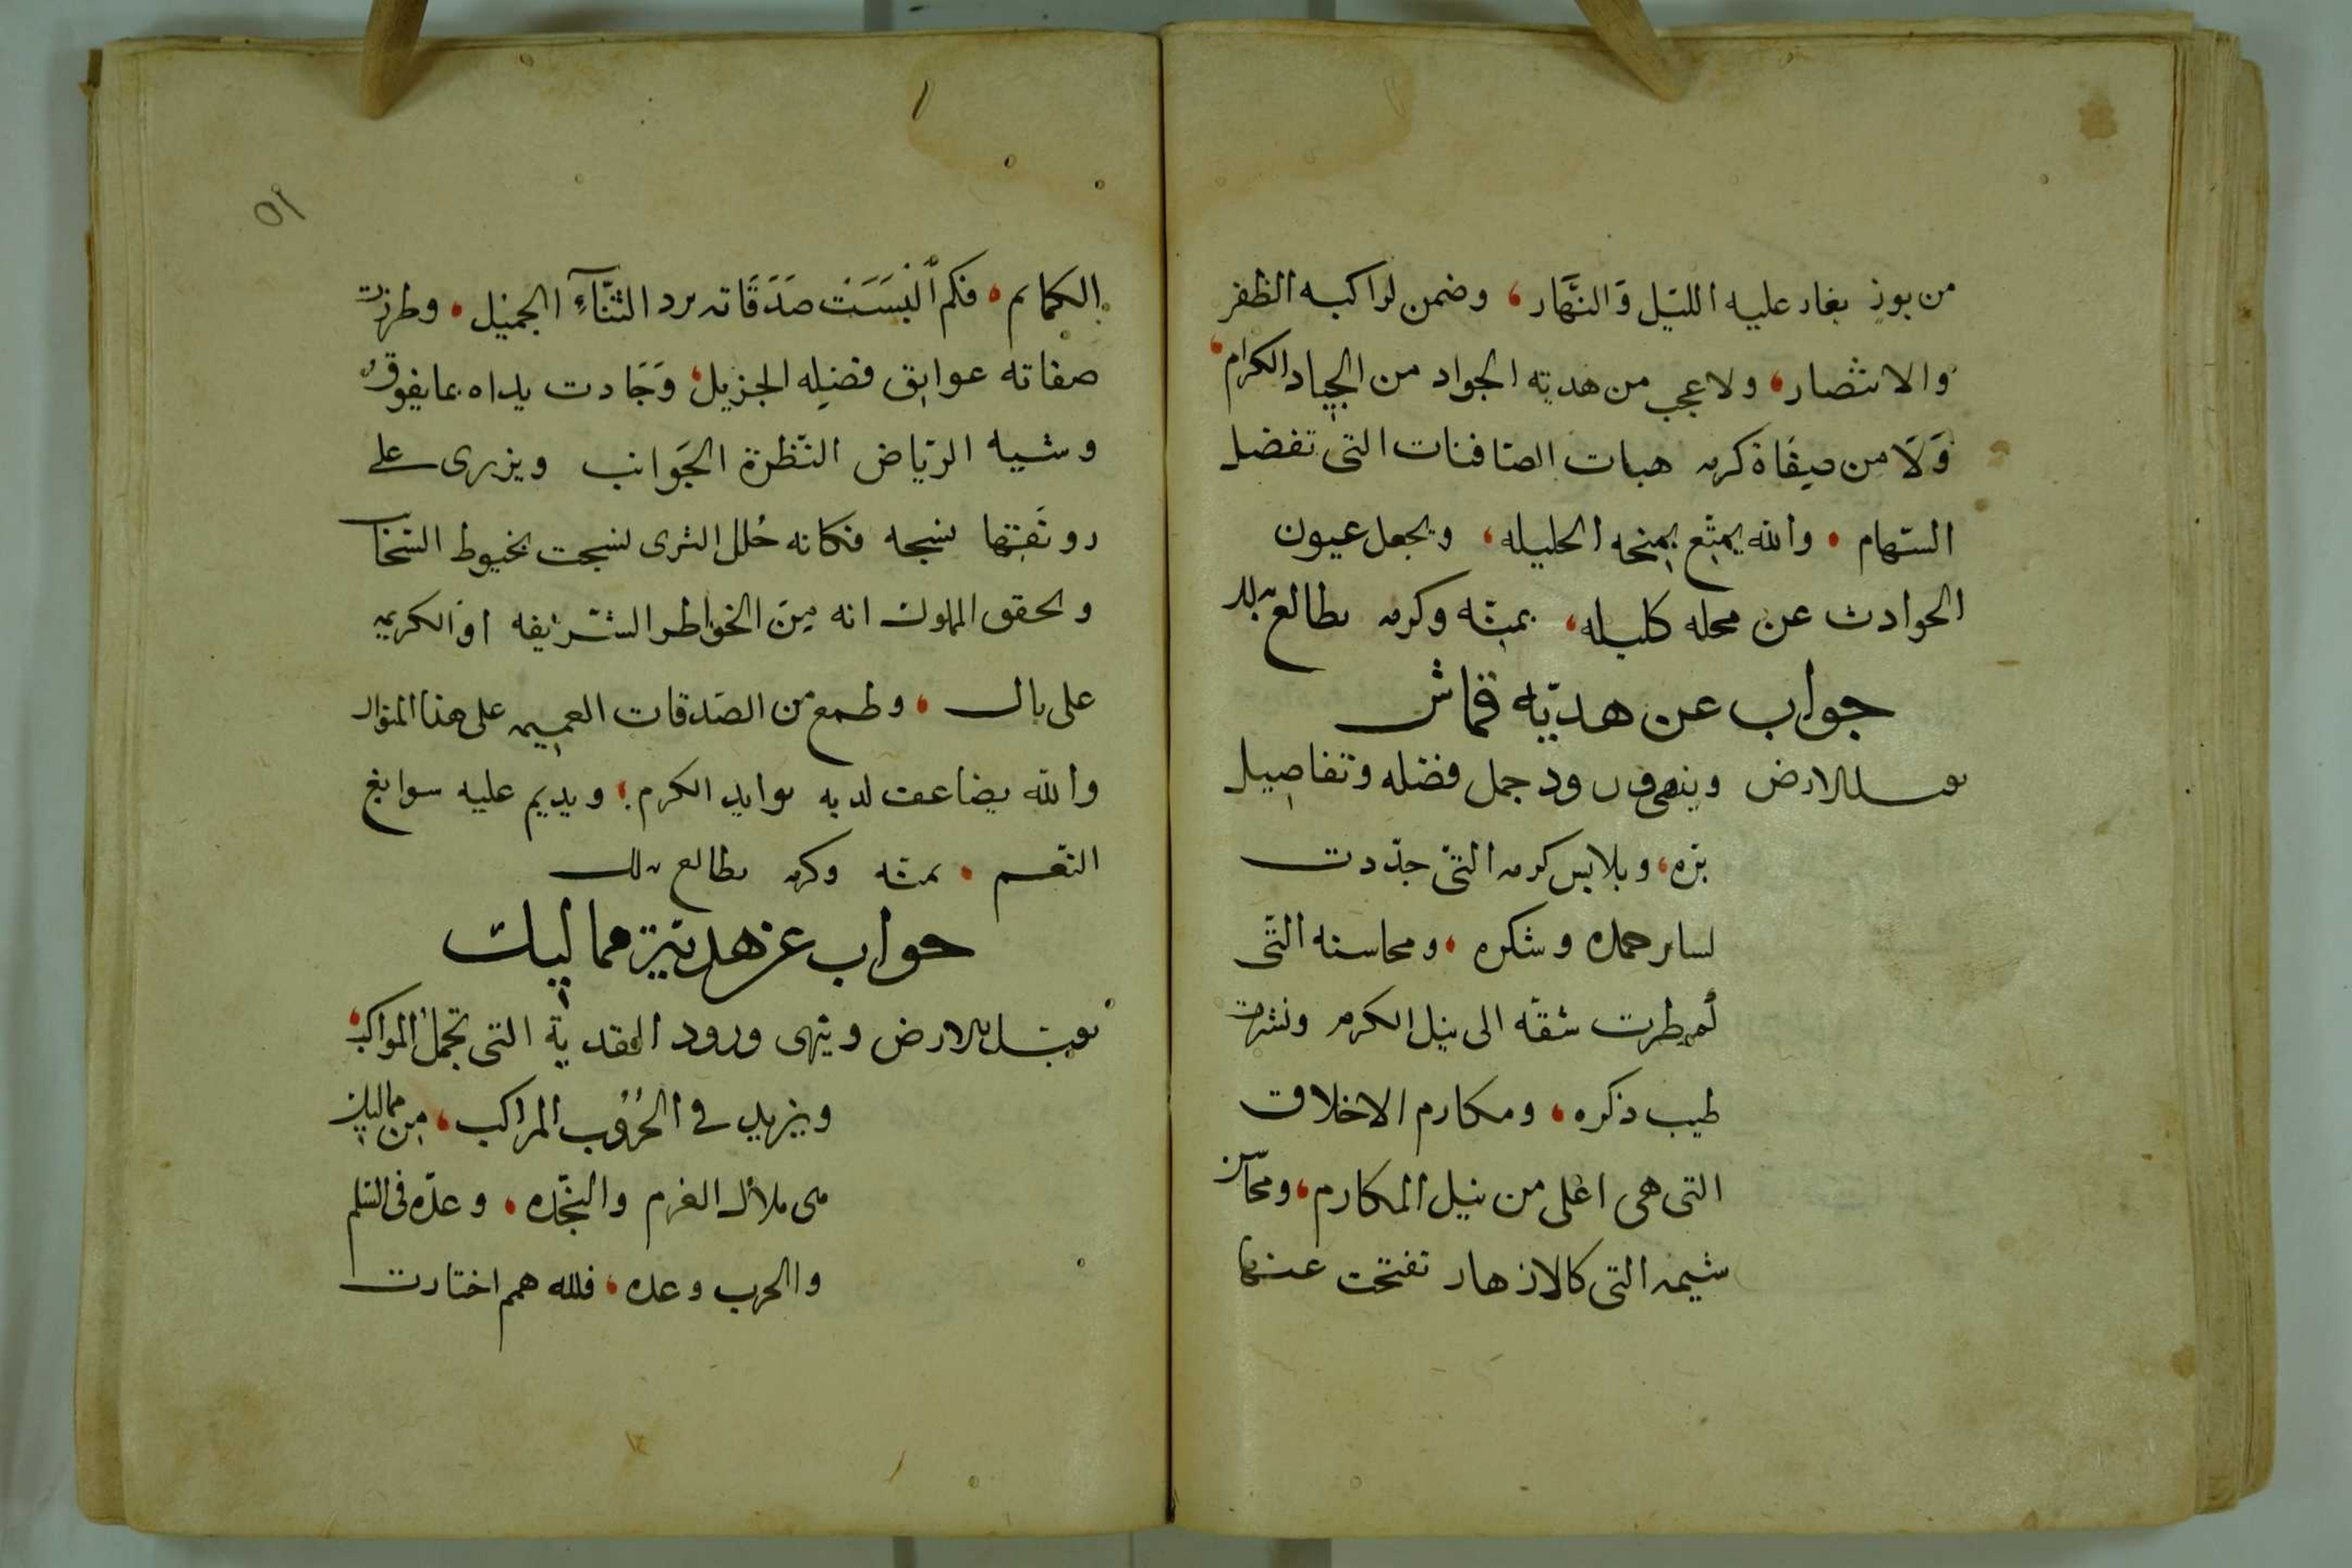 من بوذ يغار عليه الليل وَالنَّهار، وضمن لراكبه الظفر
والانتصار، ولا عجب من هديته الجواد من الجياد الكرام،
وَلَا من صفاة كرمه هبات الصافنات التى تفضل
السّهام • والله يمتّع بمنحه الجليله، ويجعل عيون
الحوادث عن محله كليله، بمنّه وكرمه يطالع بذلك
جواب عن هديّه قماش
يقبل الارض وينهى ورود جمل فضله وتفاصيل
بزه، وملابس كرمه التى جدّدت
لساير حمده وشكره، ومحاسنه التّى
أمطرت شقّه الى نيل الكرم ونشرت
طيب ذكره، ومكارم الاخلاق
التى هى اغلى من نيل المكارم، ومحاسن
شيمه التى كالازهار تفتحت عنها
٥١
الكمايم، فكم ألْبَسَتْ صَدَقَاته برد الثّنَآءِ الجميل • وطرزت
صفاته عواتق فضله الجزيل، وَجَادت يداه بما يفوق
وشيه الرّياض النّظرة الجَوانب ويزرى على
رونَقها نسجه فكانه حُلل الثرى نسجت بخيوط السّحاب
وتحقق المملوك انه مِنَ الخواطر الشّريفه او الكريمه
على بال، وطمع من الصّدقات العميمه على هذا المنوال
والله يضاعف لديه موايد الكرم، ويديم عليه سوابغ
النّعم • بمنّه وكرمه يطالع بذلك
جواب عن هديّة مماليك
يقبل الارض وينهى ورود التقدمة التى تجمل المواكب،
ويزيد فى الحُرُوب المراكب، من مماليك
هى ملاك العزم والنّجّده، وعدّه فى السّلم
والحرب وعده، فلله همم اختارت